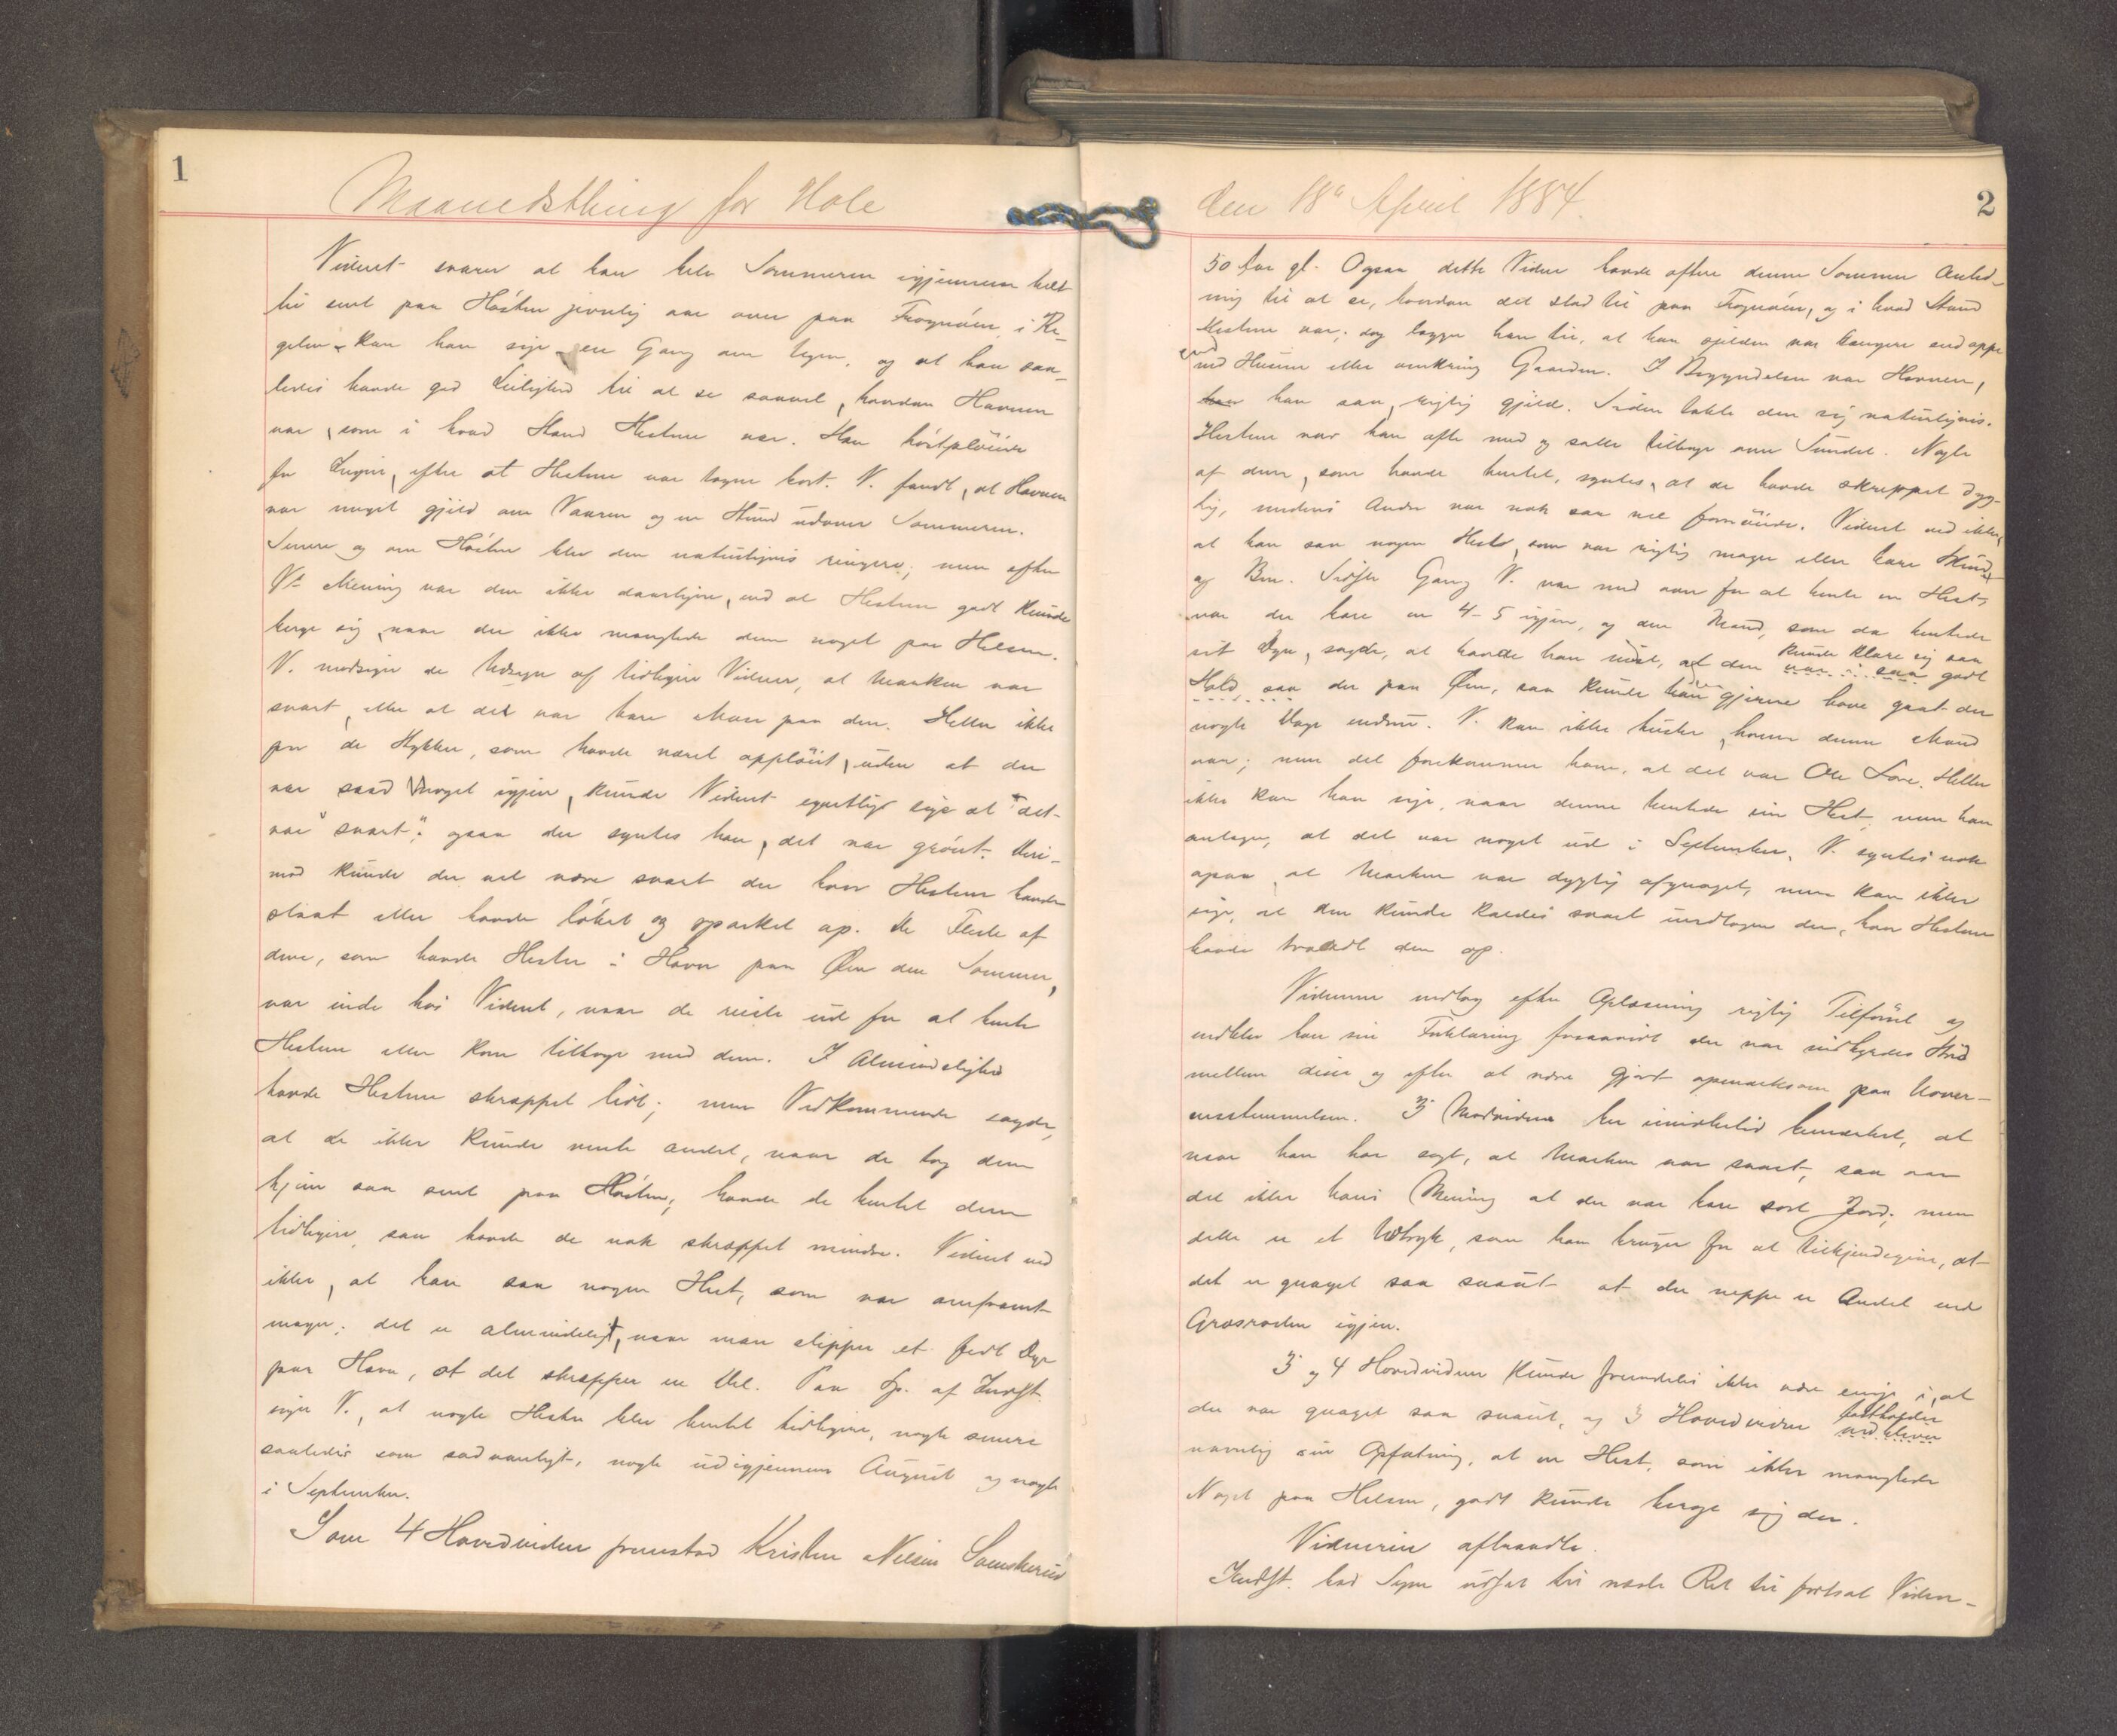 1
Maanedsthing for Hole
Vidnet svarer at han hele Sommeren igjennem helt
til sent paa Hösten jevnlig var over paa Frognöen, i Re-
gelen kan han sige en Gang om Ugen, og at han saa-
ledes havde god Leilighed til at se saavel, hvordan Havnen
var, som i hvad Stand Hestene var. Han höstplöiede
for Eugen, efter at Hestene var tagne bort. V. fandt, at Havnen
var meget gjild om Vaaren og en Stund udover Sommeren.
Senere og om Hösten blev den naturligvis ringere; men efter
Vs Mening var den ikke daarligere, end at Hestene godt kunde
berge sig, naar der ikke manglede dem noget paa Helsen.
V. modsiger de Udsagn af tidligere Vidner, at Marken var
svart, eller at det var bare Mose paa den. Heller ikke
paa de Stykker, som havde været opplöiet, uden at der
var saad Noget igjen, kunde Vidnet egentlig sige at det
var "svart"; ogsaa der syntes han, det var grönt. Deri-
mod kunde der vel være svart der hvor Hestene havde
staat eller havde löbet og sparket op. De Fleste af
dem, som havde Hester i Havn paa Øen den Sommer,
var inde hos Vidnet, naar de reiste ud for at hente
Hestene eller kom tilbage med dem. I Almindelighed
havde Hestene skrappet lidt; men Vedkommende sagde,
at de ikke kunde vente andet, naar de tog dem
hjem saa sent paa Hösten; havde de hentet dem
tidligere, saa havde de nok skrappet mindre. Vidnet ved
ikke, at han saa nogen Hest, som var omframt
mager; det er almindeligt, naar man slipper et fedt Dyr
paa Havn, at det skrapper en Del. Paa Sp. af Indst.
siger V., at nogle Hester blev hentet tidligere, nogle senere
saaledes som sædvanligt, nogle udigjennem August og nogle
i September.
Som 4 Hovedvidne fremstod Kristen Nilsen Svenskerud
den 18de April 1884.
2
50 Aar gl. Ogsaa dette Vidne havde oftere denne Sommer Anled-
ning til at se, hvordan det stod til paa Frognöen, og i hvad Stand
Hestene var; dog lægger han til, at han sjelden var længere end oppe
ved Husene eller omkring Gaarden. I Begyndelsen var Havnen,
han saa, rigtig gjild. Siden tabte den sig naturligvis.
Hestene var han ofte med og satte tilbage over Sundet. Nogle
af dem, som havde hentet, syntes, at de havde skrappet dyg-
tig, medens Andre var nok saa vel fornöiede. Vidnet ved ikke,
at han saa nogen Hest, som var rigtig mager eller bare Skind
og Ben. Sidste Gang V. var med over for at hente en Hest,
var der bare en 4-5 igjen, og den Mand, som da hentede
sit Dyr, sagde, at havde han vidst, at den kunde klare sig saa var i saa godt
Hold, saa der paa Øen, saa kunde den gjerne have gaat der
nogle Dage endnu. V. kan ikke huske, hvem denne Mand
var; men det forekommer ham, at det var Ole Sore. Heller
ikke kan han sige, naar denne hentede sin Hest, men han
antager, at det var noget ud i September. V. syntes nok
ogsaa, at Marken var dygtig afgnaget, men kan ikke
sige, at den kunde kaldes svart undtagen der, hvor Hestene
havde traadt den op.
Vidnerne vedtog efter Oplæsning rigtig Tilförsel og
vedblev hver sin Forklaring forsaavidt der var indbyrdes Strid
mellem disse og efter at være gjort opmærksom paa Uover-
ensstemmelsen. 3 Modvidne har imidlertid bemærket, at
naar han har sagt, at Marken var svart, saa var
det ikke hans Mening at der var bare sort Jord; men
dette er et Udtryk, som han bruger for at tilkjendegive, at
det er gnaget saa snaut at der neppe er Andet end
Græsroden igjen.
3 og 4 Hovedvidne kunde fremdeles ikke være enige i, at
der var gnaget saa snaut, og 3 Hovedvidne fastholder vedbliver
navnlig sin Opfatning, at en Hest, som ikke manglede
Noget paa Helsen, godt kunde berge sig der.
Vidnerne aftraadte.
Indst. bad Sagen udsat til næste Ret til fortsat Vidne-